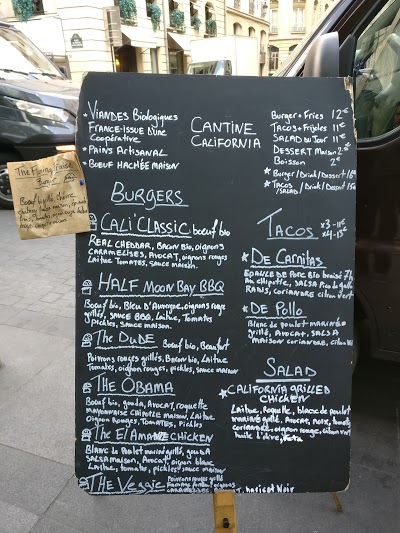 Viandes Biologiques
France-Issue d'une
Coopérative
* Pains Artisanal
* Boeuf Haché maison
Cantine
California
Burger + Fries 12€
Tacos + Frijoles 11€
Salad du Jour 11€
Dessert Maison 2.5€
Boisson 2€
* Burger/Drink/Dessert 16€
* Tacos/Salad/Drink/Dessert 15€
Burger
Burgers
Cali'Classic boeuf bio
Real cheddar, Bacon bio, oignons
caramelisés, Avocat, oignons rouges
Laitue Tomates, sauce maison.
Half Moon Bay BBQ
Boeuf bio, Bleu D'Auvergne, oignons rouges
grillés, sauce BBQ, Laitue, Tomates
pickles, Sauce maison.
The Dude Boeuf bio, Beaufort
Poivrons rouges grillés, Bacon bio, Laitue
Tomates, oignon rouges, pickles, sauce maison
The Obama
Boeuf bio, gouda, Avocat, roquette
mayonnaise chipotle maison, Laitue
Oignon Rouges, Tomates, Pickles
The El Amane chicken
Blanc de Poulet mariné grillé, gouda
salsa maison, Avocat, oignon blanc
Laitue, tomates, pickles, sauce maison
The Veggie Poivrons rouges grillé
oignons
caramelisés, haricot Noir
Tacos x3-11€
x4-13€
* De Carnitas
Epaule de Porc Bio braisé
An chipotle, salsa
Radis, coriandre citron vert
* De Pollo
Blanc de poulet mariné
grillé, Avocat, salsa
maison coriandre, citron
Salad
* California grilled
chicken
Laitue, Roquette, blanc de poulet
mariné grillé, Avocat, noix, tomates
coriandre, oignon rouge, citron vert
huile d'olive, Feta